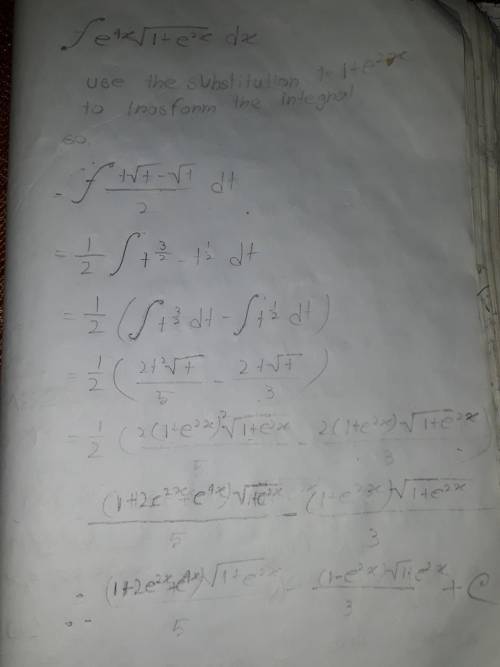 ∫ e^4x √(1+e^2x) dx
use the substitution t=1+e^2x
to trasform the integral
so
= ∫ (t√t - √t)/2 dt
= 1/2 ∫ t^3/2 - t^1/2 dt
= 1/2 (∫ t^3/2 dt - ∫ t^1/2 dt)
= 1/2 (2t^2√t/5 - 2t√t/3)
= 1/2 (2(1+e^2x)^2 √(1+e^2x)/5 - 2(1+e^2x)√(1+e^2x)/3)
(1+2e^2x+e^4x)√(1+e^2x)/5 - (1+e^2x)√(1+e^2x)/3
∴ (1+2e^2x+e^4x)√(1+e^2x)/5 - (1-e^2x)√(1+e^2x)/3 + C